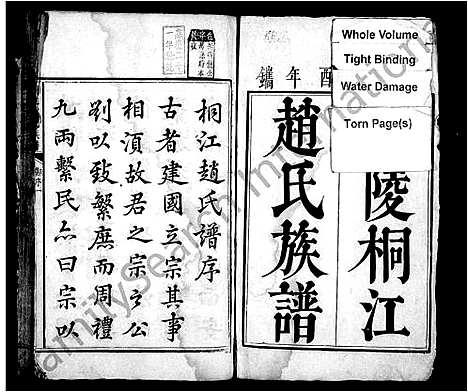 Whole Volume
Tight Binding
Water Damage
Torn Page(s)
酉年鐫
陵桐江
趙氏族譜
桐江趙氏譜序
古者建國立宗其事
相須故君之宗之公
剔以致繁庶而周禮
九兩繫民亦曰宗以
FamilySearch International